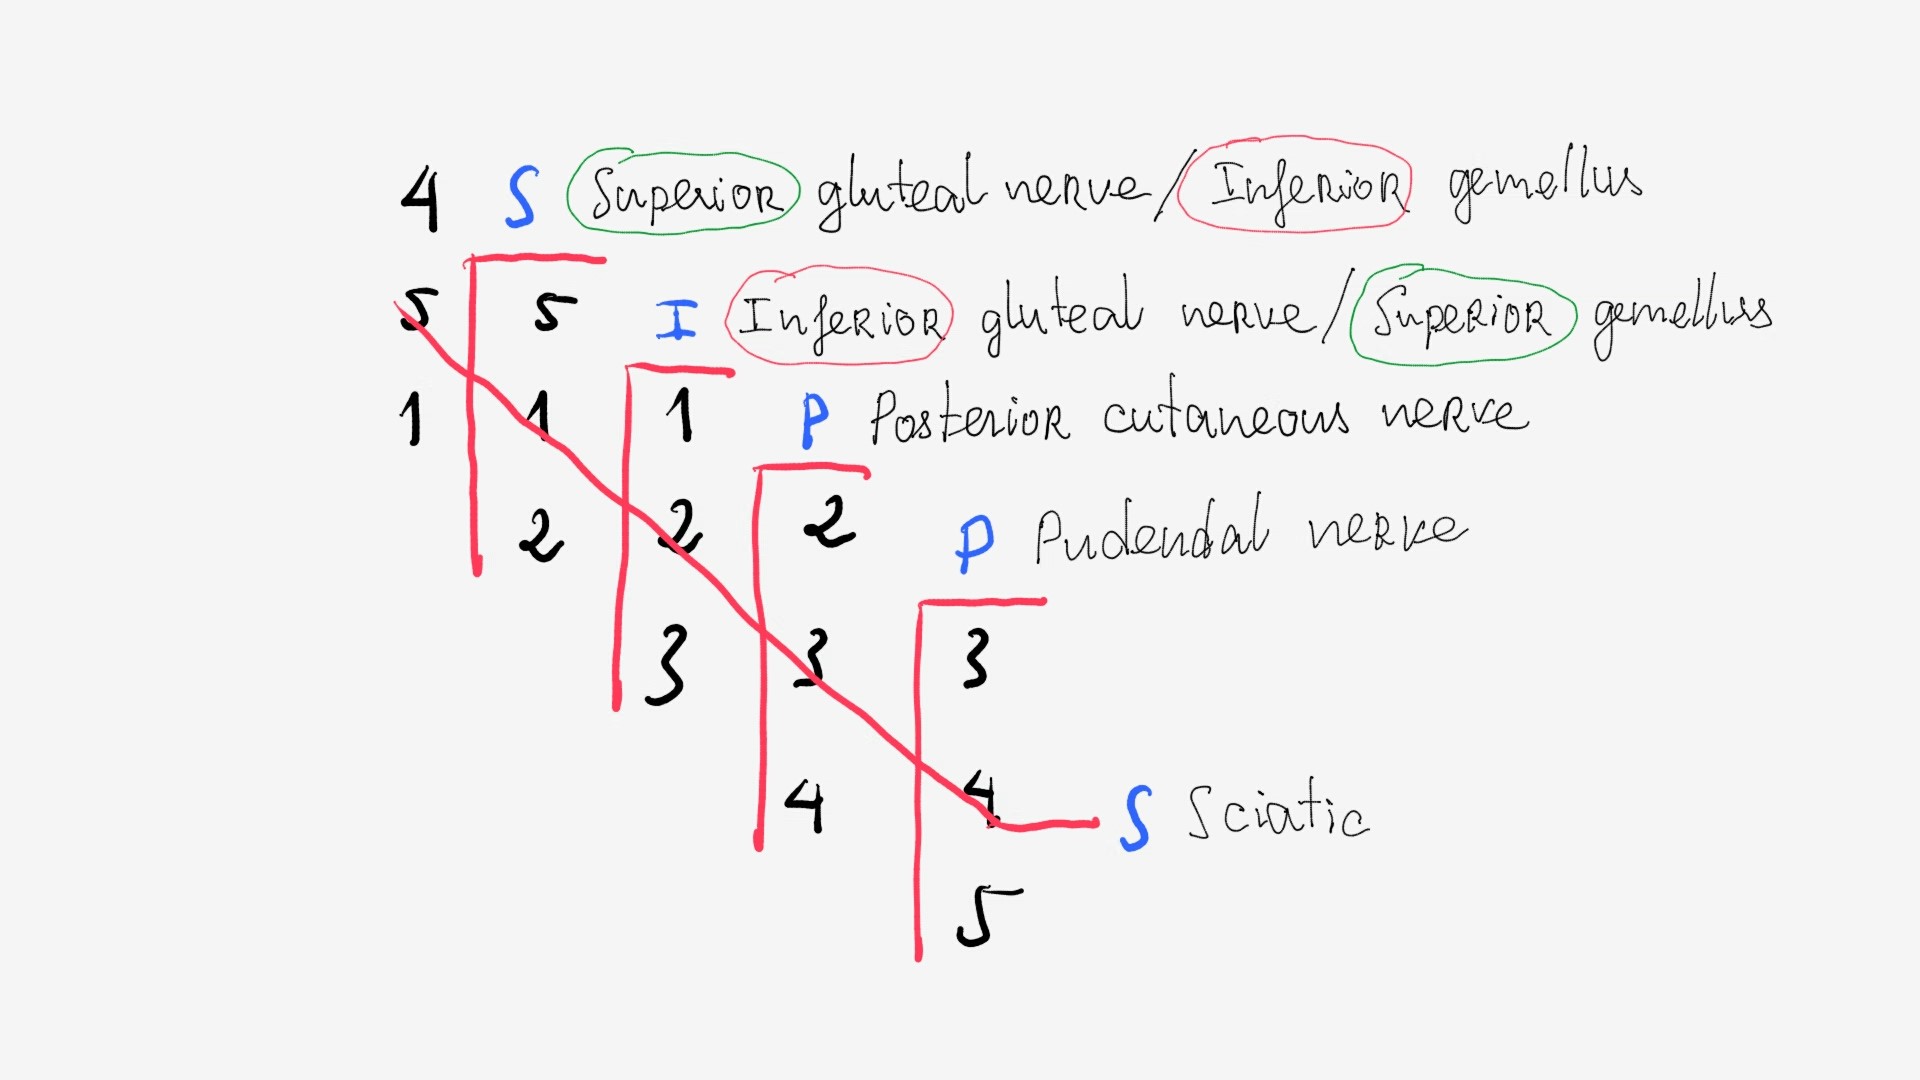 4 S Superior gluteal nerve/Inferior gemellus
5 5 I Inferior gluteal nerve/Superior gemellus
1 1 1 P Posterior cutaneous nerve
2 2 2 P Pudendal nerve
3 3 3
4 4 S Sciatic
5